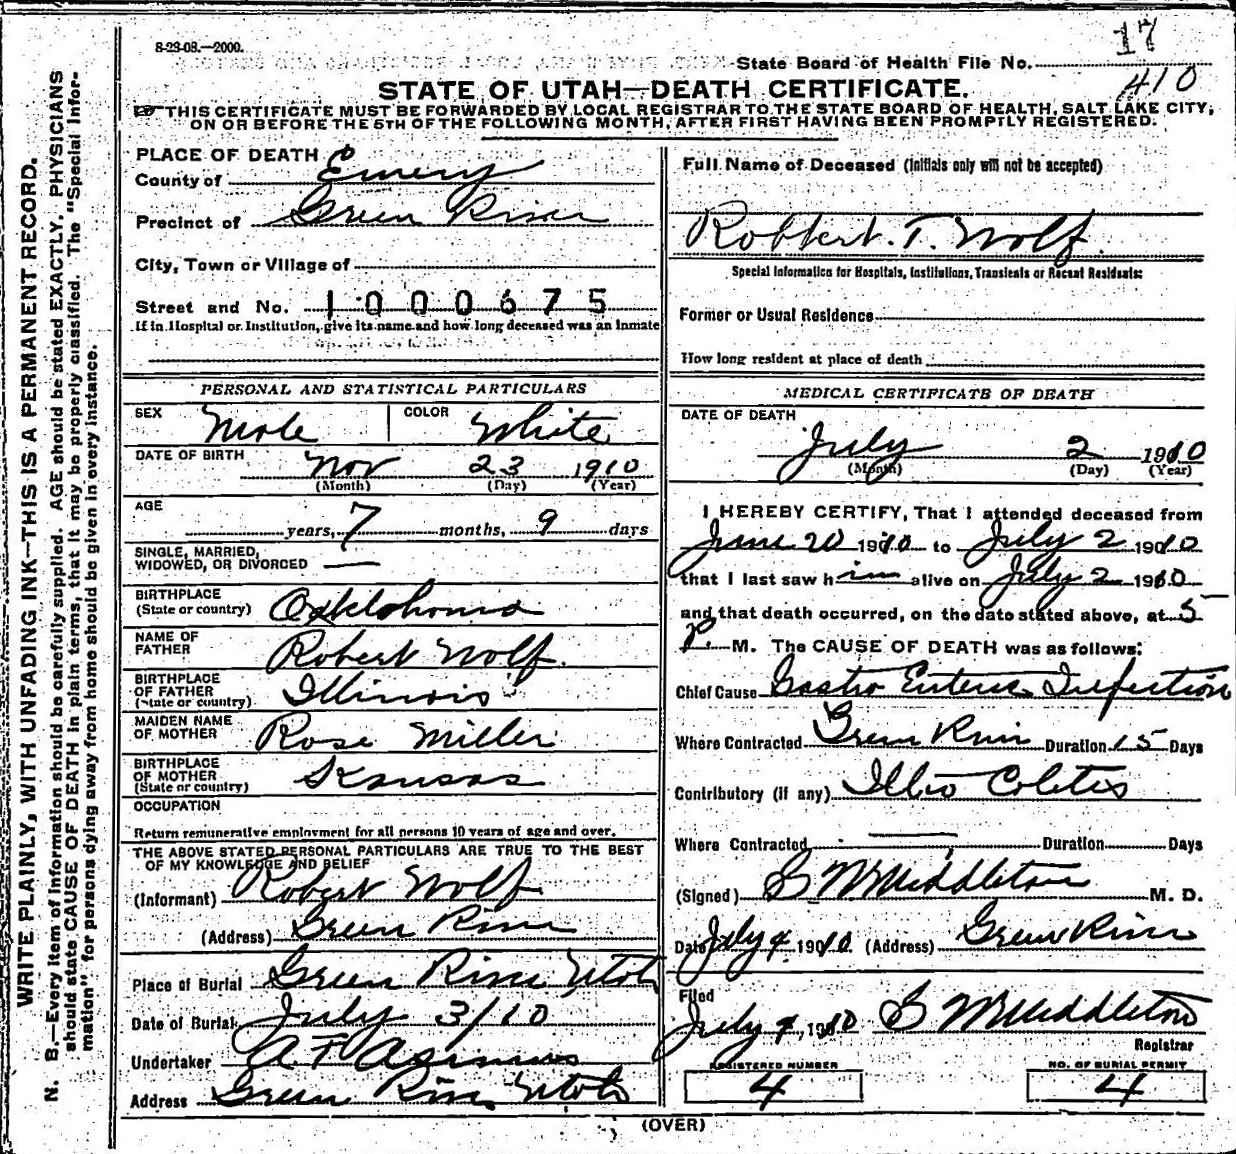 8-23-08.—2000.
17
State Board of Health File No.
410
STATE OF UTAH—DEATH CERTIFICATE.
THIS CERTIFICATE MUST BE FORWARDED BY LOCAL REGISTRAR TO THE STATE BOARD OF HEALTH, SALT LAKE CITY,
ON OR BEFORE THE 5TH OF THE FOLLOWING MONTH, AFTER FIRST HAVING BEEN PROMPTLY REGISTERED.
WRITE PLAINLY, WITH UNFADING INK—THIS IS A PERMANENT RECORD.
N. B.—Every item of information should be carefully supplied. AGE should be stated EXACTLY. PHYSICIANS
should state CAUSE OF DEATH in plain terms, that it may be properly classified. The "Special Infor-
mation" for persons dying away from home should be given in every instance.
PLACE OF DEATH
County of Emery
Precinct of Green River
City, Town or Village of
Street and No. 1000675
If in Hospital or Institution, give its name and how long deceased was an inmate
PERSONAL AND STATISTICAL PARTICULARS
SEX Male COLOR White
DATE OF BIRTH Nov 23 1910
(Month) (Day) (Year)
AGE
years, 7 months, 9 days
SINGLE, MARRIED,
WIDOWED, OR DIVORCED —
BIRTHPLACE
(State or country) Oaklohoma
NAME OF
FATHER Robert Wolf.
BIRTHPLACE
OF FATHER
(State or country) Illinois
MAIDEN NAME
OF MOTHER Rose Miller
BIRTHPLACE
OF MOTHER
(State or country) Kansas
OCCUPATION
Return remunerative employment for all persons 10 years of age and over.
THE ABOVE STATED PERSONAL PARTICULARS ARE TRUE TO THE BEST
OF MY KNOWLEDGE AND BELIEF
(Informant) Robert Wolf
(Address) Green River
Place of Burial Green River Utah
Date of Burial July 3/10
Undertaker A F
Address Green River Utah
Full Name of Deceased (Initials only will not be accepted)
Robbert. T. Wolf.
Special Information for Hospitals, Institutions, Transients or Recent Residents:
Former or Usual Residence
How long resident at place of death
MEDICAL CERTIFICATE OF DEATH
DATE OF DEATH
July 2 1910
(Month) (Day) (Year)
I HEREBY CERTIFY, That I attended deceased from
June 20 1910 to July 2 1910
that I last saw him alive on July 2 1910
and that death occurred, on the date stated above, at 5
P. M. The CAUSE OF DEATH was as follows:
Chief Cause Gastro Enteric Infection
Where Contracted Green River Duration 15 Days
Contributory (if any) Illio Coletis
Where Contracted — Duration Days
(Signed) Middleton M. D.
Date July 4 1910 (Address) Green River
Filed
July 4, 1910 Middleton
Registrar
REGISTERED NUMBER
4
NO. OF BURIAL PERMIT
4
(OVER)